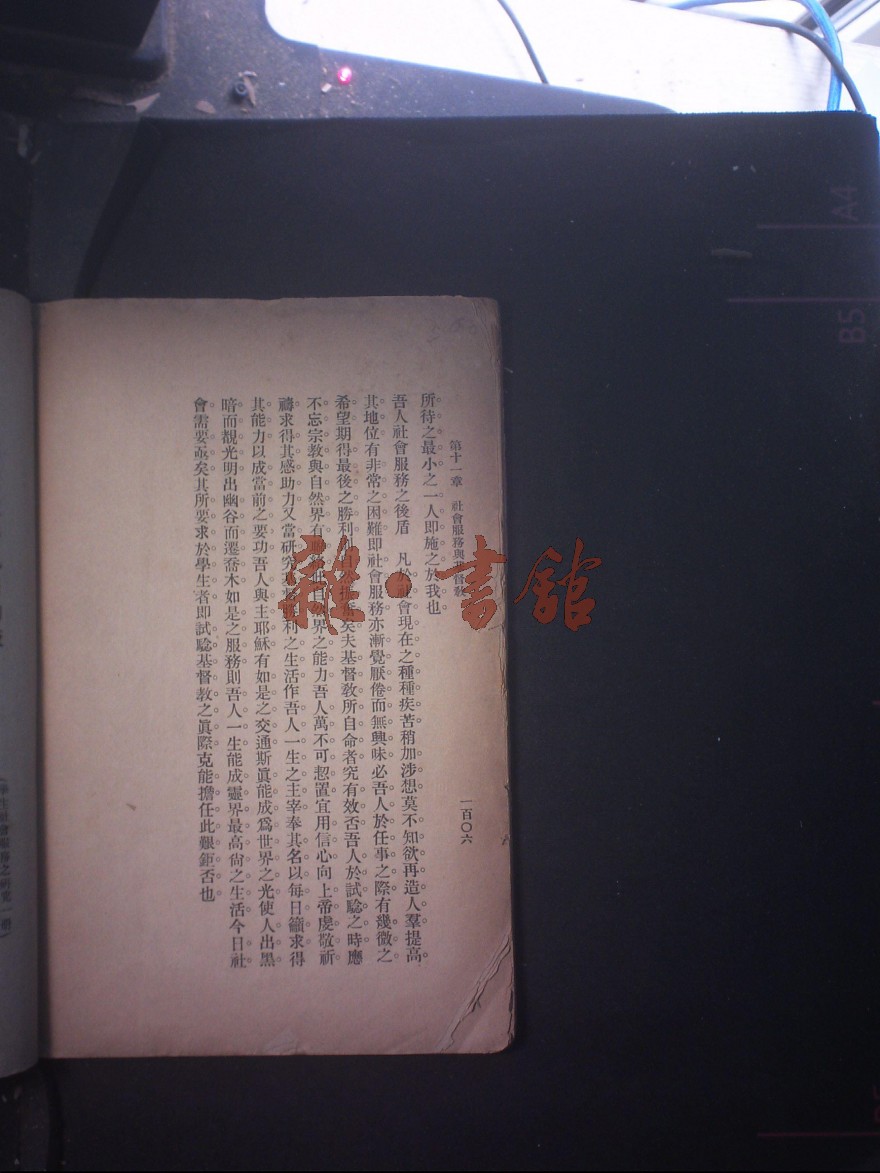 第十一章 社會服務與基督教
一百〇六
所待之最小之一人即施之於我也
吾人社會服務之後盾 凡於社會現在之種種疾苦稍加涉想莫不知欲再造人羣提高
其地位有非常之困難即社會服務亦漸覺厭倦而無興味必吾人於任事之際有幾微之
希望期得最後之勝利矣夫基督敎所自命者究有效否吾人於試騐之時應
不忘宗敎與自然界有自然界之能力吾人萬不可恝置宜用信心向上帝虔敬祈
禱求得其感助力又當研究基督勝利之生活作吾人一生之主宰奉其名以每日籲求得
其能力以成當前之要功吾人與主耶穌有如是之交通斯眞能成爲世界之光使人出黑
暗而覩光明出幽谷而遷喬木如是之服務則吾人一生能成靈界最高尙之生活今日社
會需要亟矣其所要求於學生者即試騐基督敎之眞際克能擔任此艱鉅否也
雜·書館
A4
B5